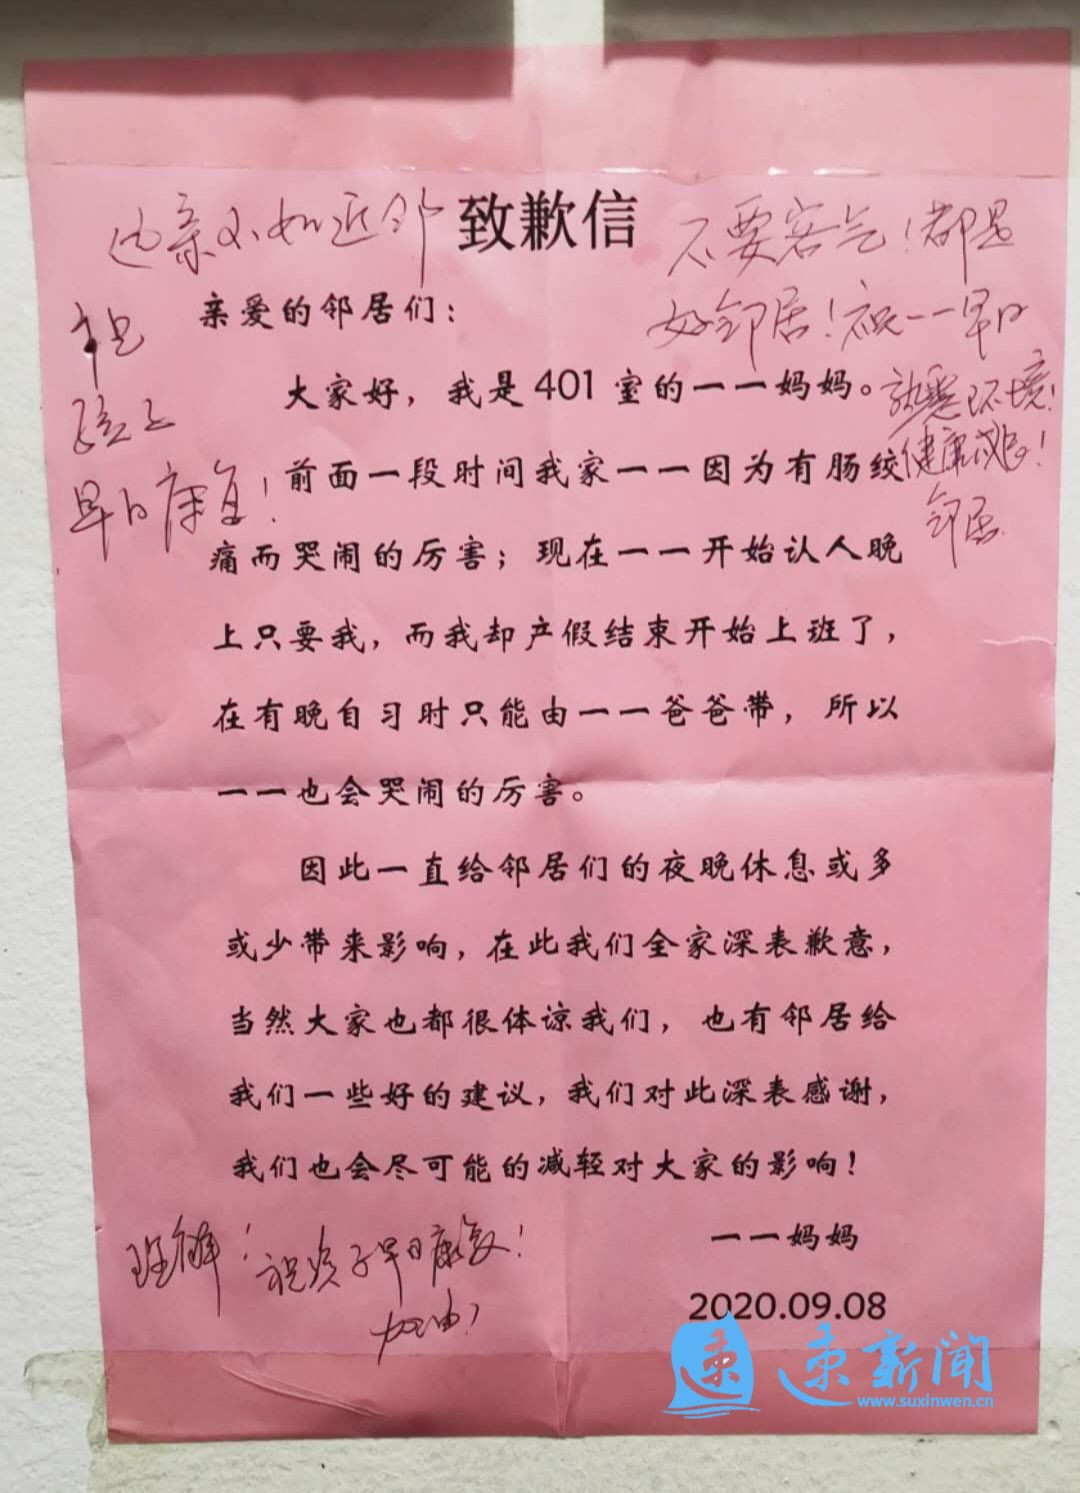 远亲不如近邻
致歉信
不要客气！都是
好邻居！祝一一早日
适应环境！
健康成长！
邻居
祝
孩子
早日康复！
亲爱的邻居们：
大家好，我是401室的一一妈妈。
前面一段时间我家一一因为有肠绞
痛而哭闹的厉害；现在一一开始认人晚
上只要我，而我却产假结束开始上班了，
在有晚自习时只能由一一爸爸带，所以
一一也会哭闹的厉害。
因此一直给邻居们的夜晚休息或多
或少带来影响，在此我们全家深表歉意，
当然大家也都很体谅我们，也有邻居给
我们一些好的建议，我们对此深表感谢，
我们也会尽可能的减轻对大家的影响！
一一妈妈
2020.09.08
理解！祝孩子早日康复！
加油！
速新闻
www.suxinwen.cn